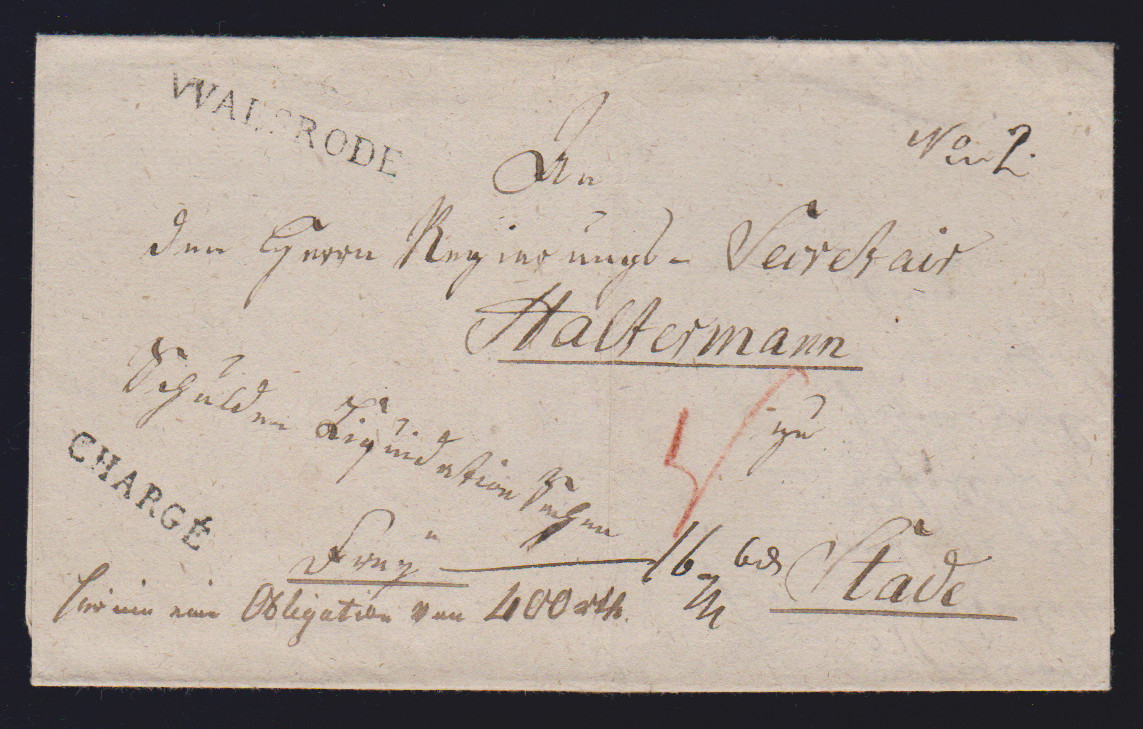 WALSRODE
No 2.
An
den Herrn Regierungs- Secretair
Haltermann
zu
Stade
Schulden Liquidation Sachen
CHARGÉ
Frey
hierin eine Obligation von 400 rth.
16